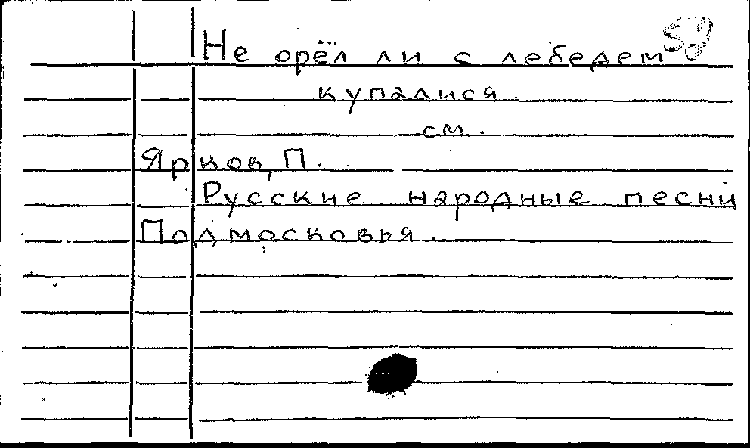 Не орёл ли с лебедем
купалися
см.
Ярков, П.
Русские народные песни
Подмосковья.